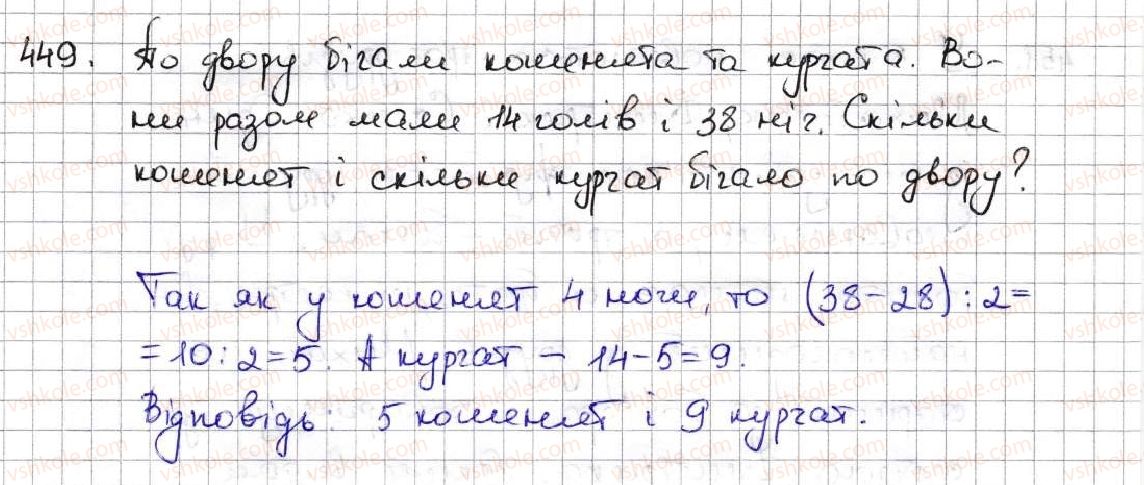 449. По двору бігали кошенята та курчата. Во-
ни разом мали 14 голів і 38 ніг. Скільки
кошенят і скільки курчат бігало по двору?
Так як у кошенят 4 ноги, то (38-28):2=
=10:2=5. А курчат - 14-5=9.
Відповідь: 5 кошенят і 9 курчат.